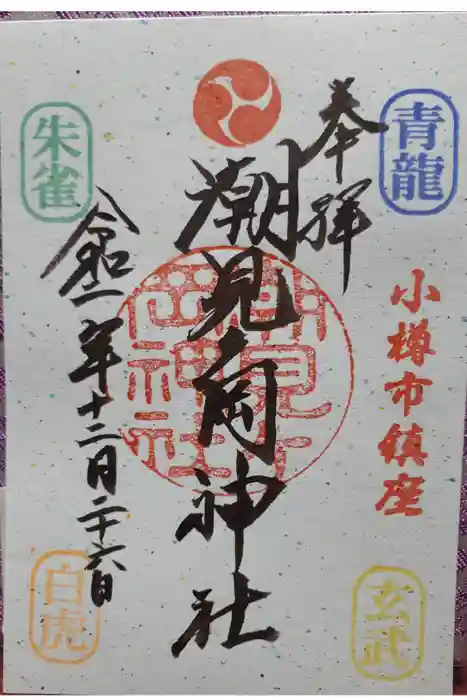 青龍
小樽市鎮座
玄武
奉拝
潮見ヶ岡神社
朱雀
令和二年十二月二十六日
白虎